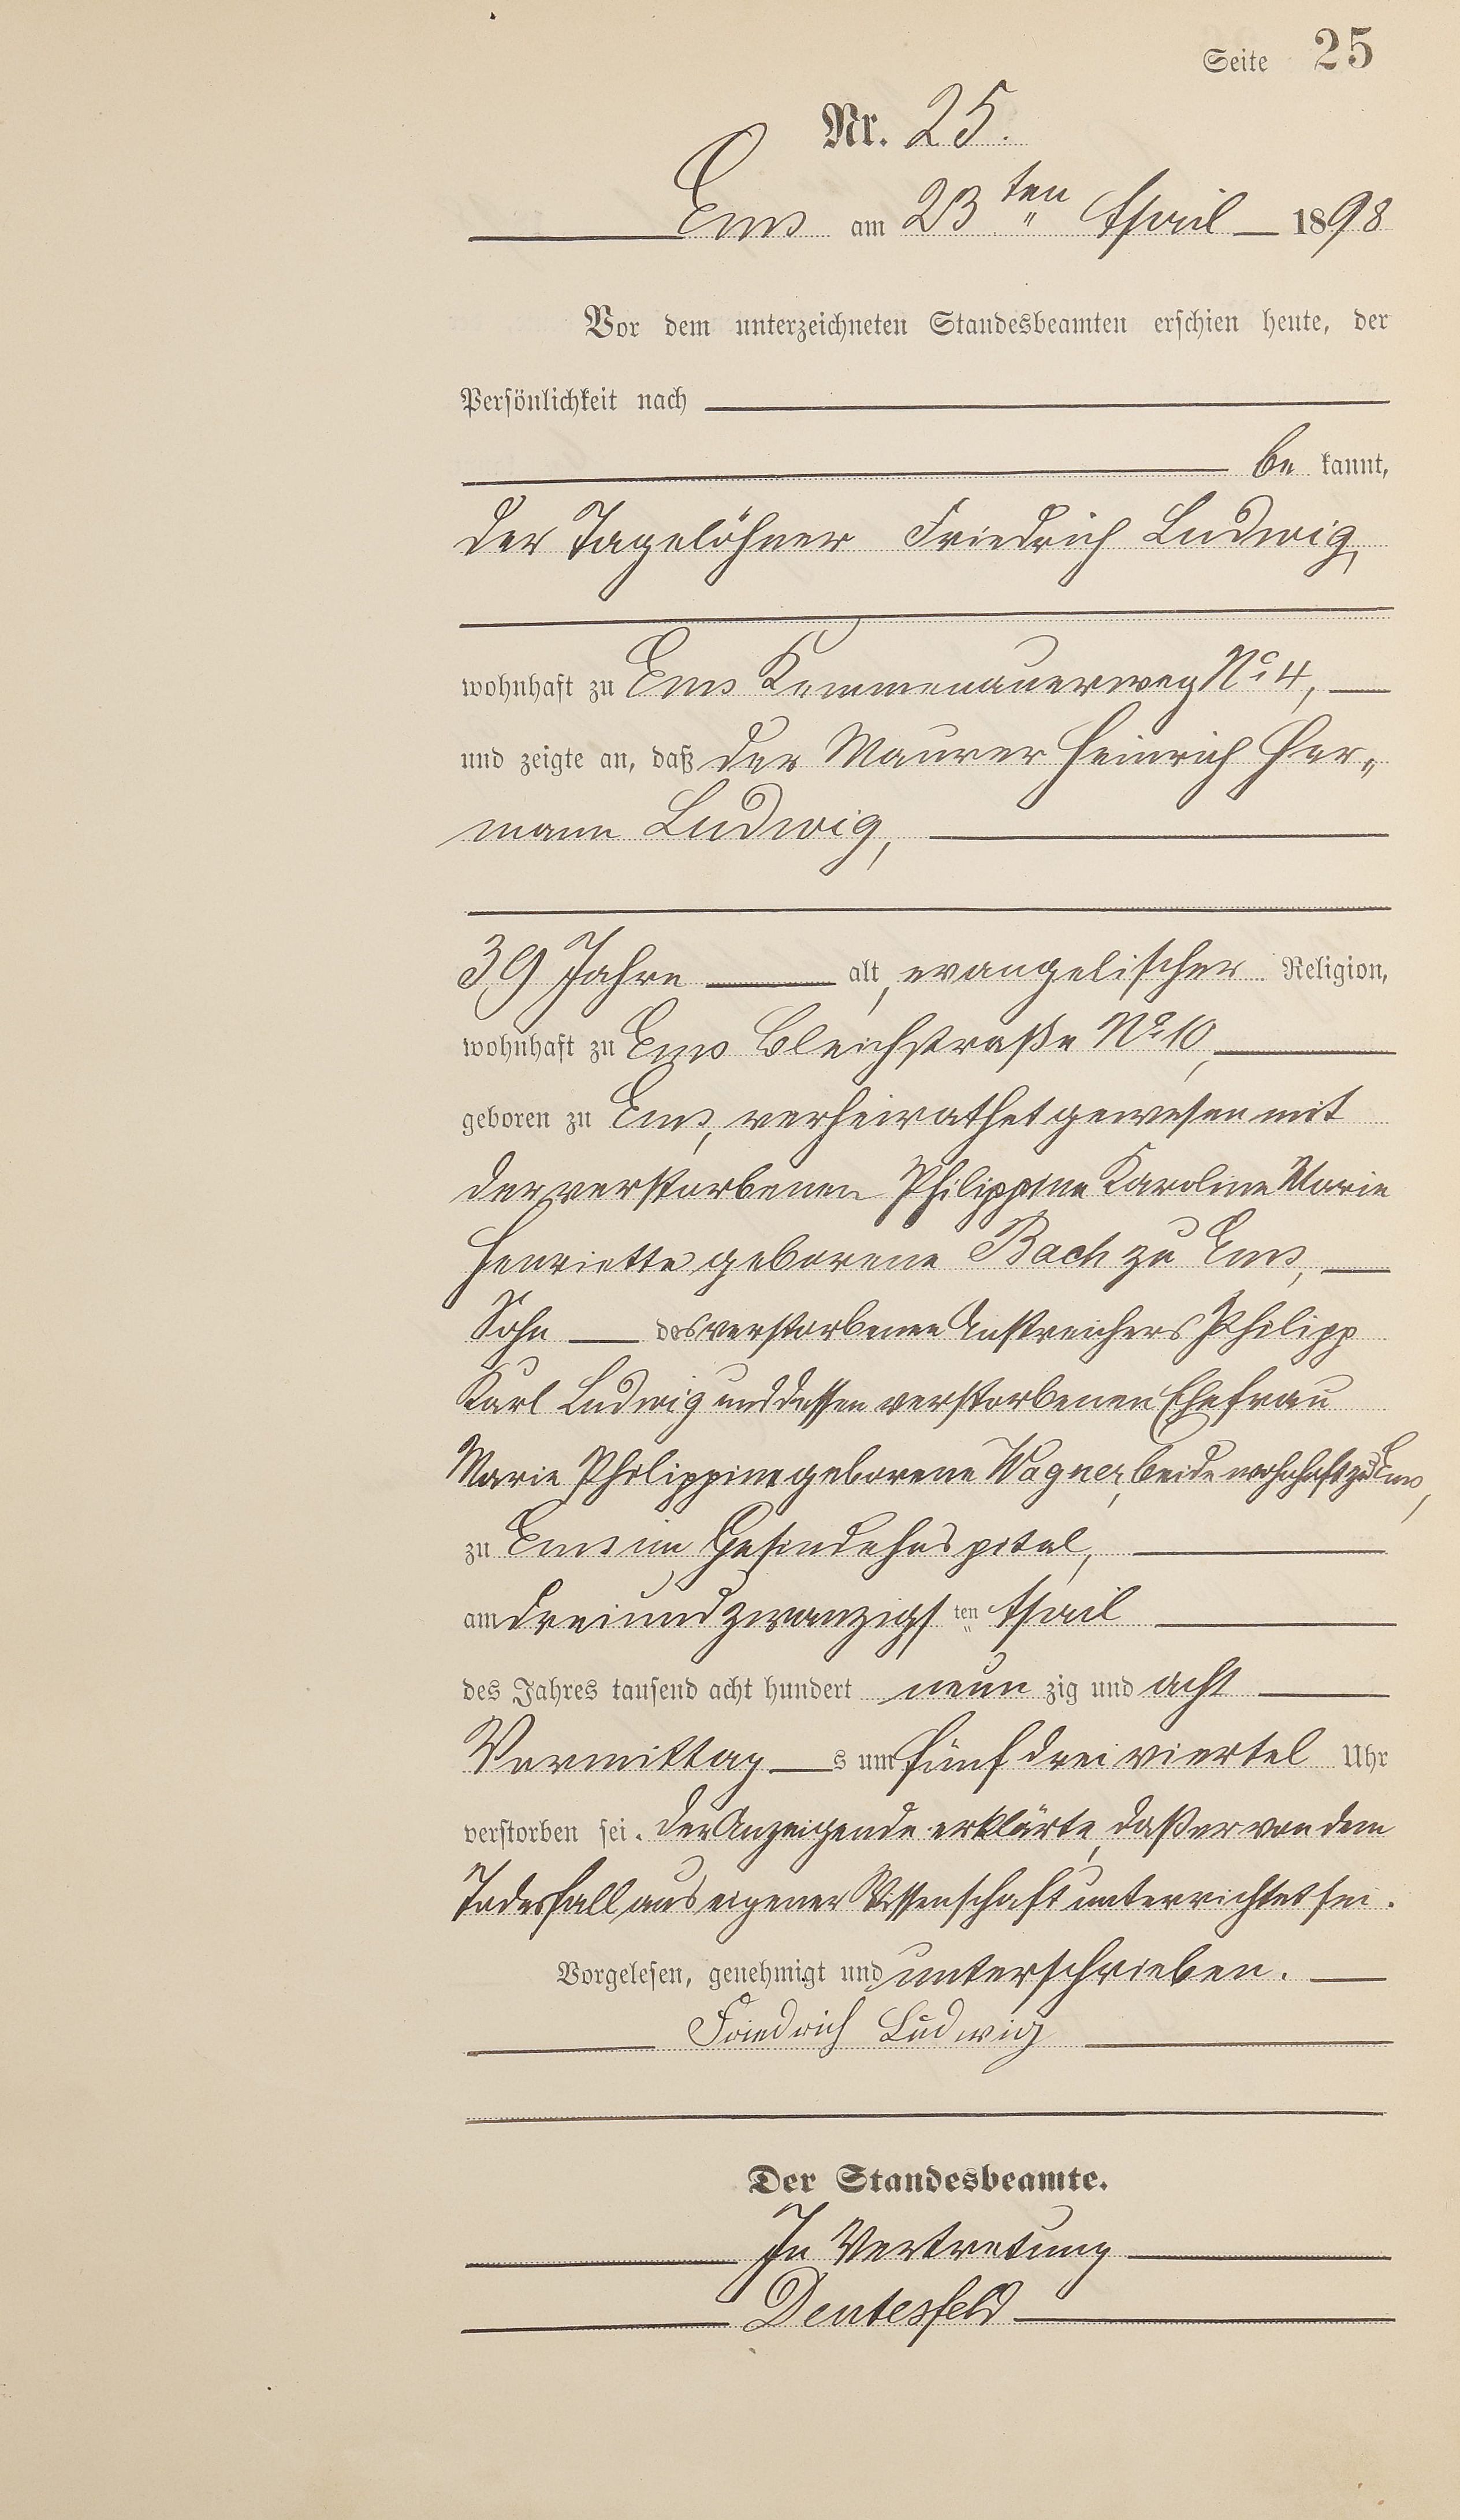 Seite 25
Nr. 25.
Ems am 23ten April 1898
Vor dem unterzeichneten Standesbeamten erschien heute, der
Persönlichkeit nach
be kannt,
der Tagelöhner Friedrich Ludwig,
wohnhaft zu Ems Kemmenauerweg No 4,
und zeigte an, daß der Maurer Heinrich Her„
mann Ludwig,
39 Jahre alt, evangelischer Religion,
wohnhaft zu Ems Bleichstraße No 10,
geboren zu Ems, verheirathet gewesen mit
der verstorbenen Philippine Karoline Marie
Henriette geborene Bach zu Ems,
Sohn des verstorbenen Anstreichers Philipp
Karl Ludwig und dessen verstorbenen Ehefrau
Marie Philippine geborene Wagner, beide wohnhaft zu Ems,
zu Ems im Gesindehospital,
am dreiundzwanzigs ten April
des Jahres tausend acht hundert neun zig und acht
Vormittag s um fünf dreiviertel Uhr
verstorben sei. Der Anzeigende erklärte, daß er von dem
Todesfall aus eigener Wissenschaft unterrichtet sei.
Vorgelesen, genehmigt und unterschrieben.
Friedrich Ludwig
Der Standesbeamte.
In Vertretung